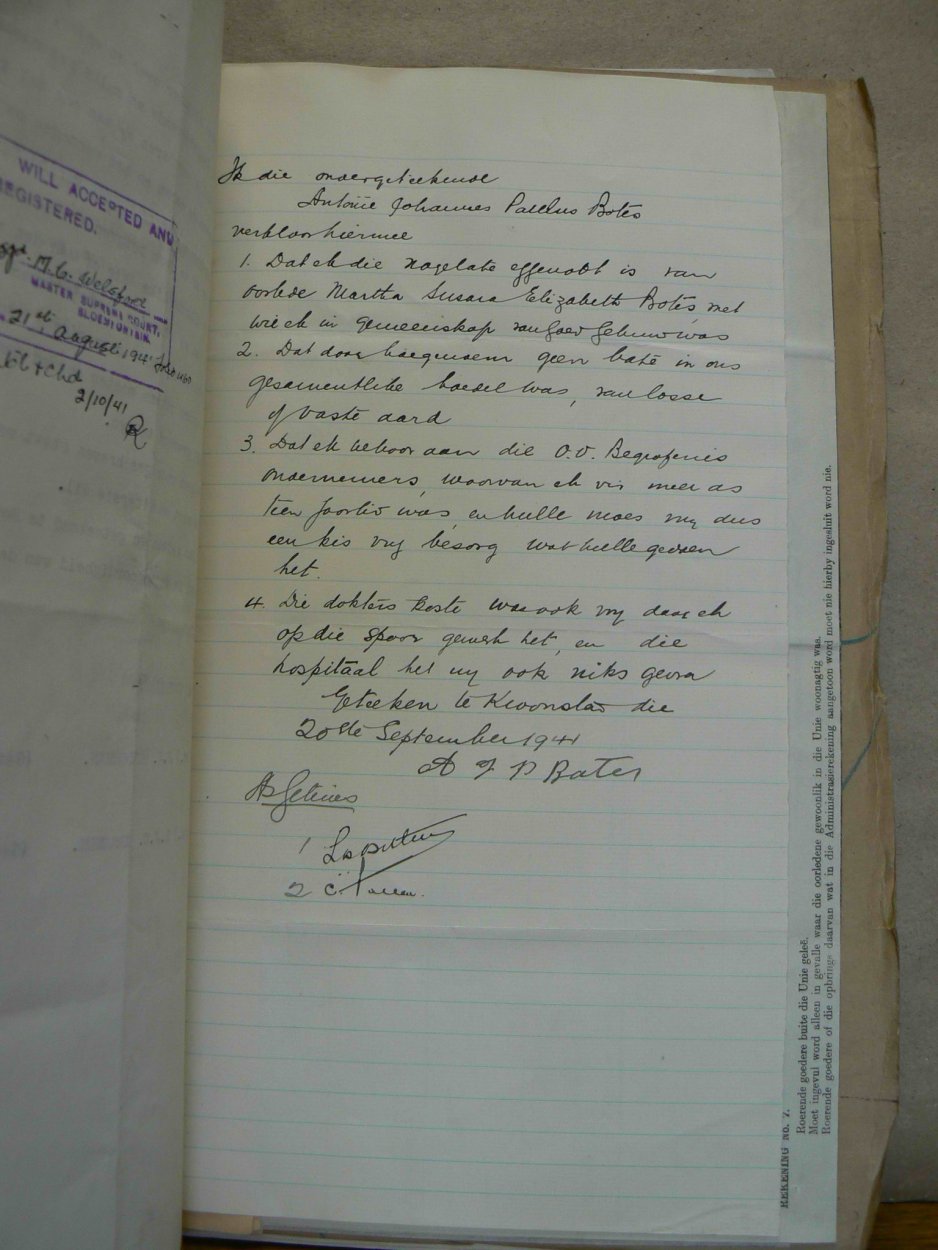 WILL ACCEPTED AND
REGISTERED.
MASTER SUPREME COURT,
BLOEMFONTEIN.
21st August 1941
2/10/41
Ik die ondergetekende
Antonie Johannes Paulus Botes
verklaar hiermee
1. Dat ek die nagelate eggenoot is van
oorlede Martha Susara Elizabeth Botes met
wie ek in gemeenskap van goed getrouw was
2. Dat daar hoegenaamd geen bate in ons
gesamentlike boedel was, van losse
of vaste aard
3. Dat ek behoor aan die O.V. Begrafenis
ondernemers, waarvan ek vir meer as
tien jaar lid was, en hulle moes my dus
een kis vry besorg wat hulle gedoen
het.
4. Die dokters koste was ook vry daar ek
op die spoor gewerk het, en die
hospitaal het my ook niks gevra
Geteeken te Kroonstad die
20ste September 1941
A J P Botes
As Getuies
1
2 C.
REKENING NO. 7.
Roerende goedere buite die Unie geleë.
Moet ingevul word alleen in gevalle waar die oorledene gewoonlik in die Unie woonagtig was.
Roerende goedere of die opbrings daarvan wat in die Administrasierekening aangetoon word moet nie hierby ingesluit word nie.